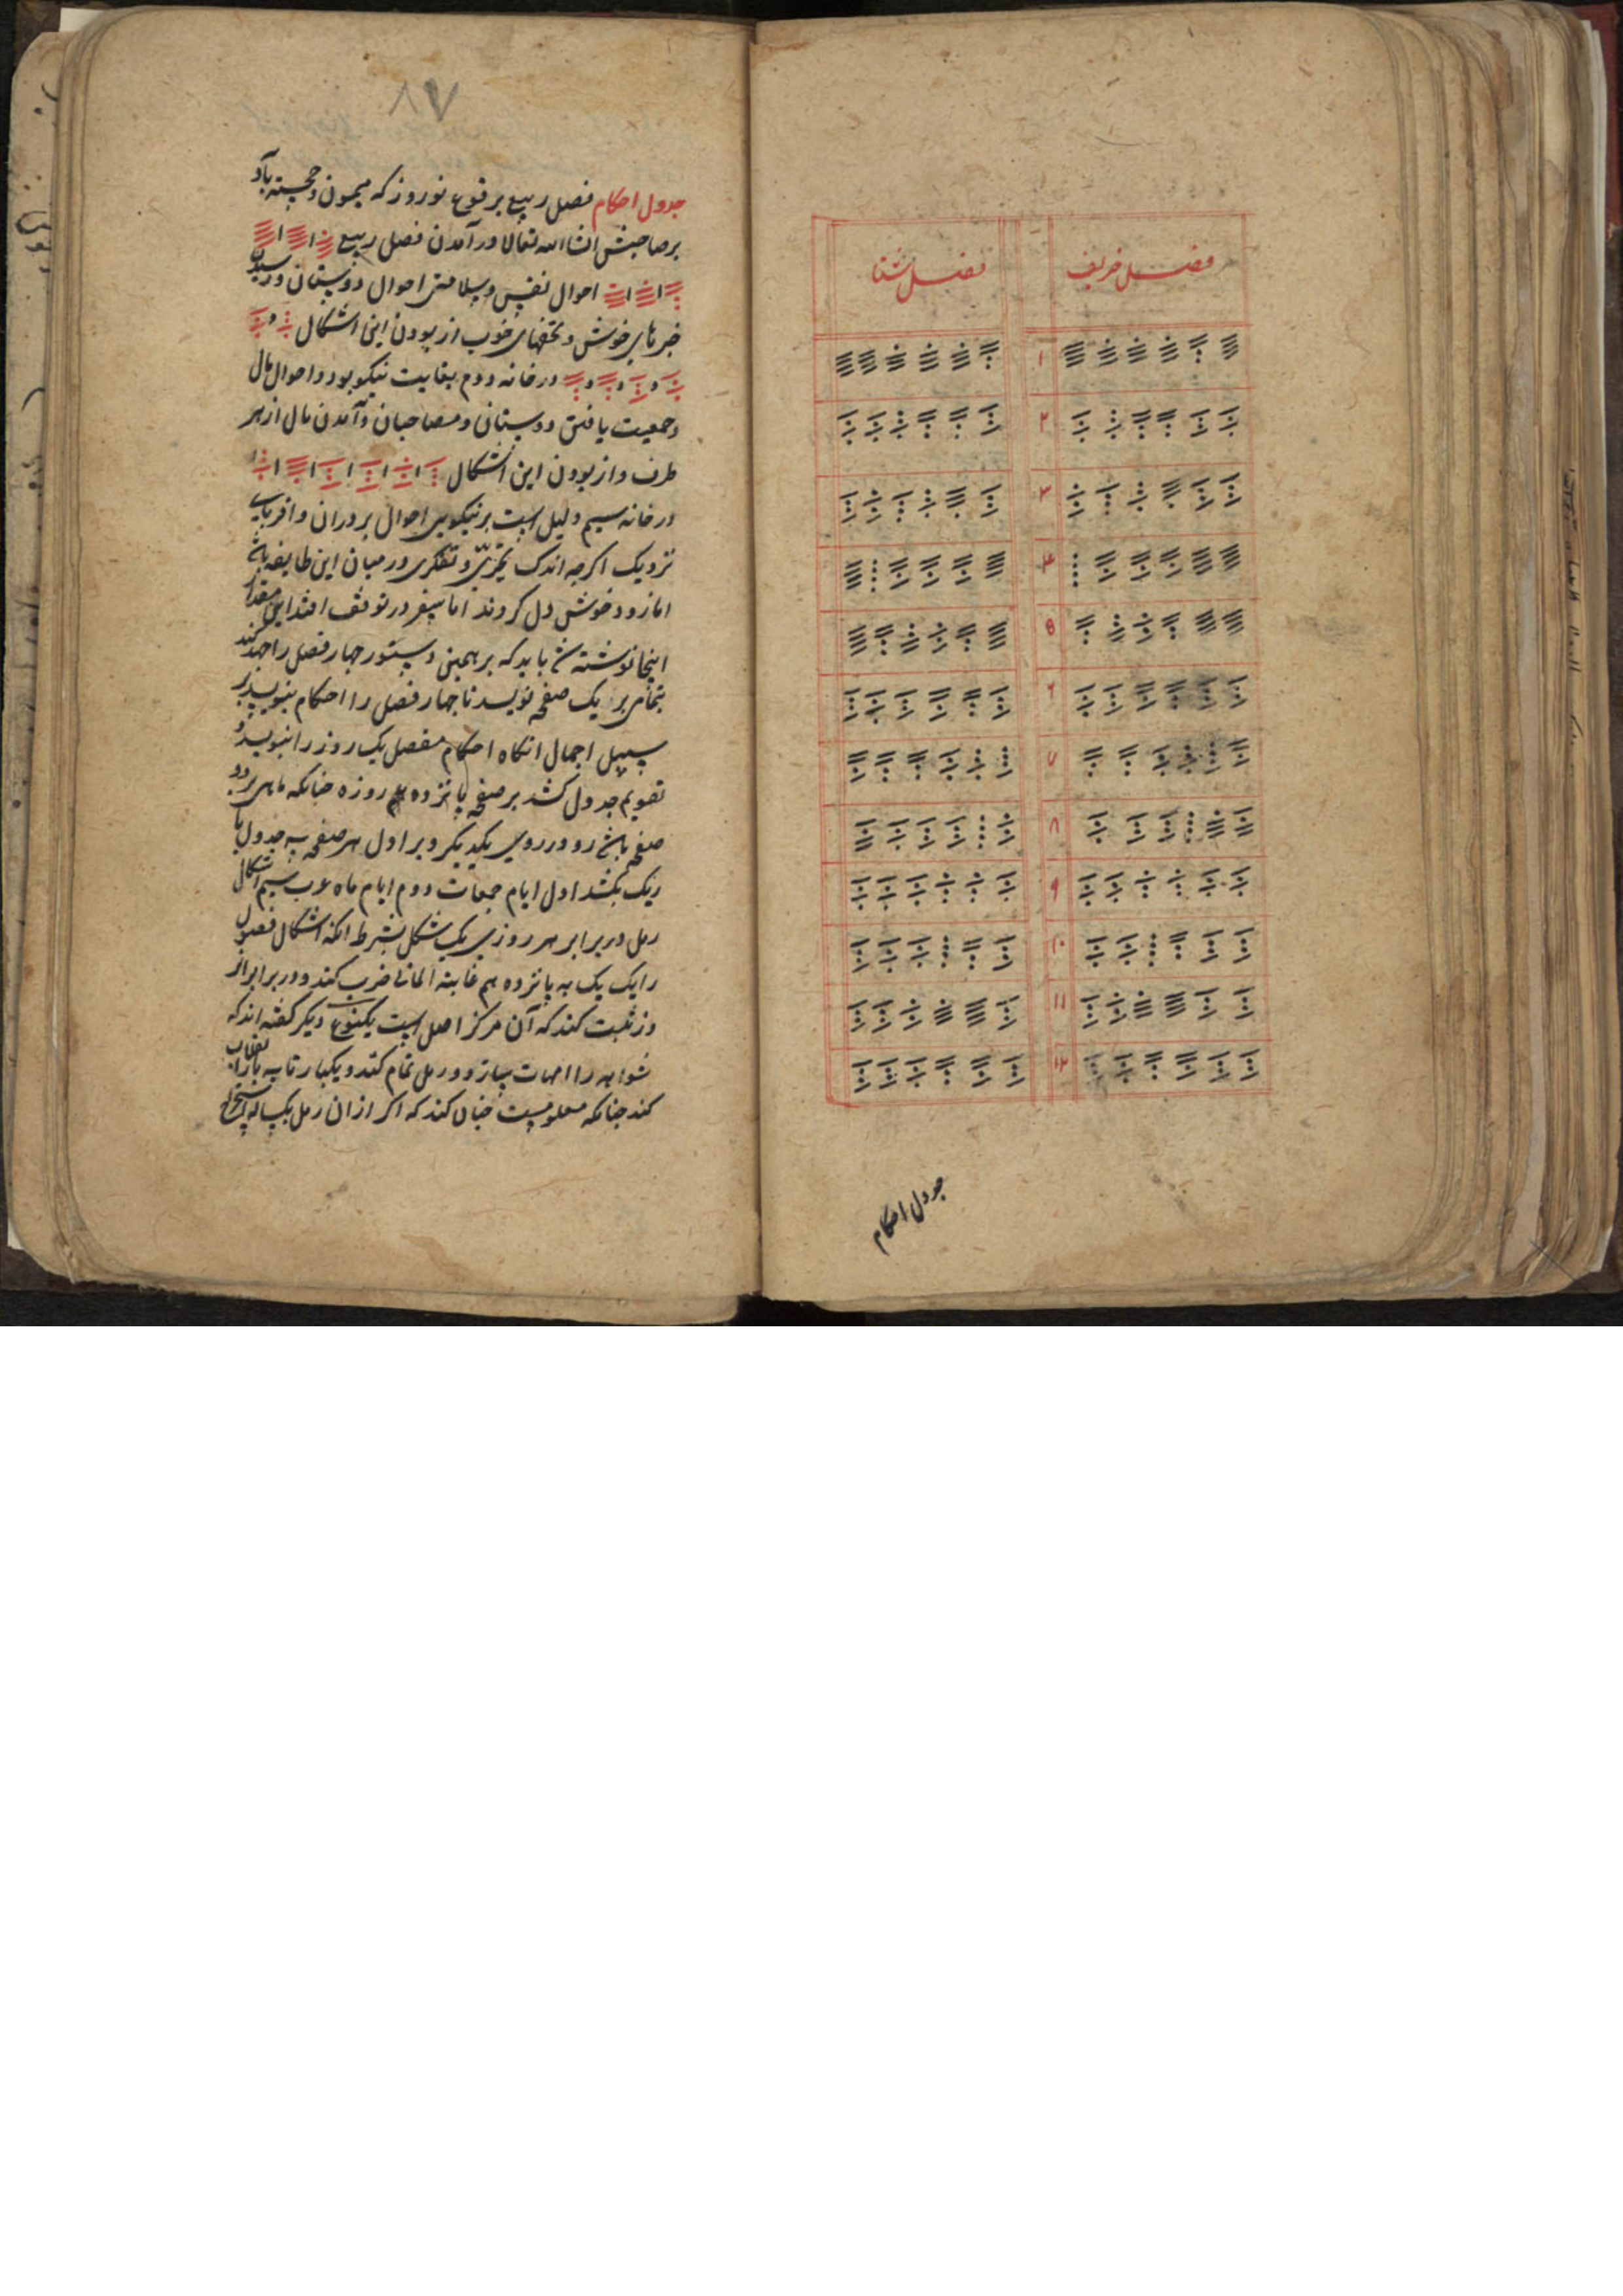 فصل خریف
فصل شتا
۱
۲
۳
۴
۵
۶
۷
۸
۹
۱۰
۱۱
۱۲
جدول احکام
۸۷
جدول احکام فصل ربیع بر قوع نوروز که میمون و خجسته باد
بر صاحبش انشاالله تعالی در آمدن فصل ربیع
احوال نفس و سلامتی احوال دوستان و رسیدن
خبرهای خوش و تحفهای خوب از بودن این اشکال
در خانه دوم بغایت نیکو بود و احوال مال
و جمعیت یافتن دوستان و مصاحبان و آمدن مال از هر
طرف و از بودن این اشکال
در خانه سیم دلیل است بر نیکویی احوال برادران و اقربای
نزدیک اکرچه اندک و تفکری در میان این طایفه باشد
اما زود خوش دل کردند اما سفر در توقف افتد این مقدار
اینجا نوشته شد باید که بر همین دستور چهار فصل را جهد کند
بتمامی بر یک صفحه نویسد تا چهار فصل را احکام بنویسد بر
سبیل اجمال انکاه احکام مفصل یک روز را بنویسد و
تقویم جدول کشد بر صفحه پانزده روزه چنانکه ماهی بر دو
صفحه باشد رو در روی یکدیکر و بر اول هر صفحه سه جدول با
ریک بکشد اول ایام جمعات دوم ایام ماه عرب سیم اشکال
رمل در برابر هر روزی یک شکل بشرط انکه اشکال فصول
را یک یک به پانزده هم ضرب کند و در برابر
وز ثبت کند که آن مرکز اصل است یکنوع دیکر کفته اند که
شواهد را امهات سازد و رمل تمام کند و یکبار تا سه بار
کند چنانکه معلومست چنان کند که اکر از ان رمل یکساله